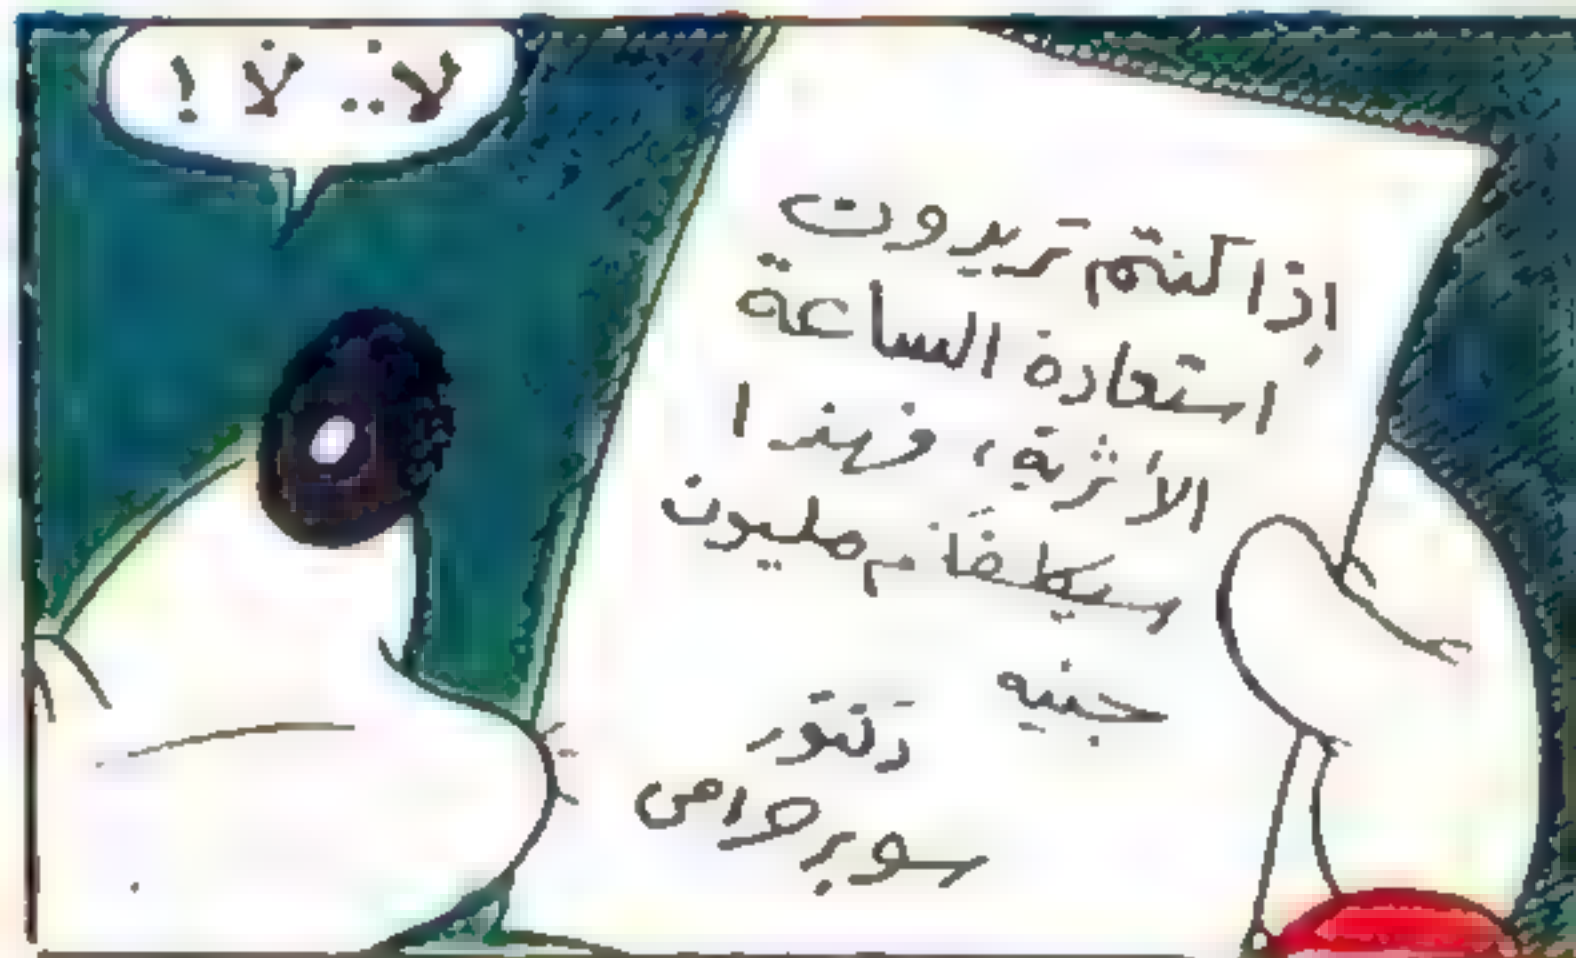 لا.. لا !
إذا كنتم تريدون
استعادة الساعة
الأثرية، فهذا
سيكلفكم مليون
جنيه
دكتور
سوبر حرامى